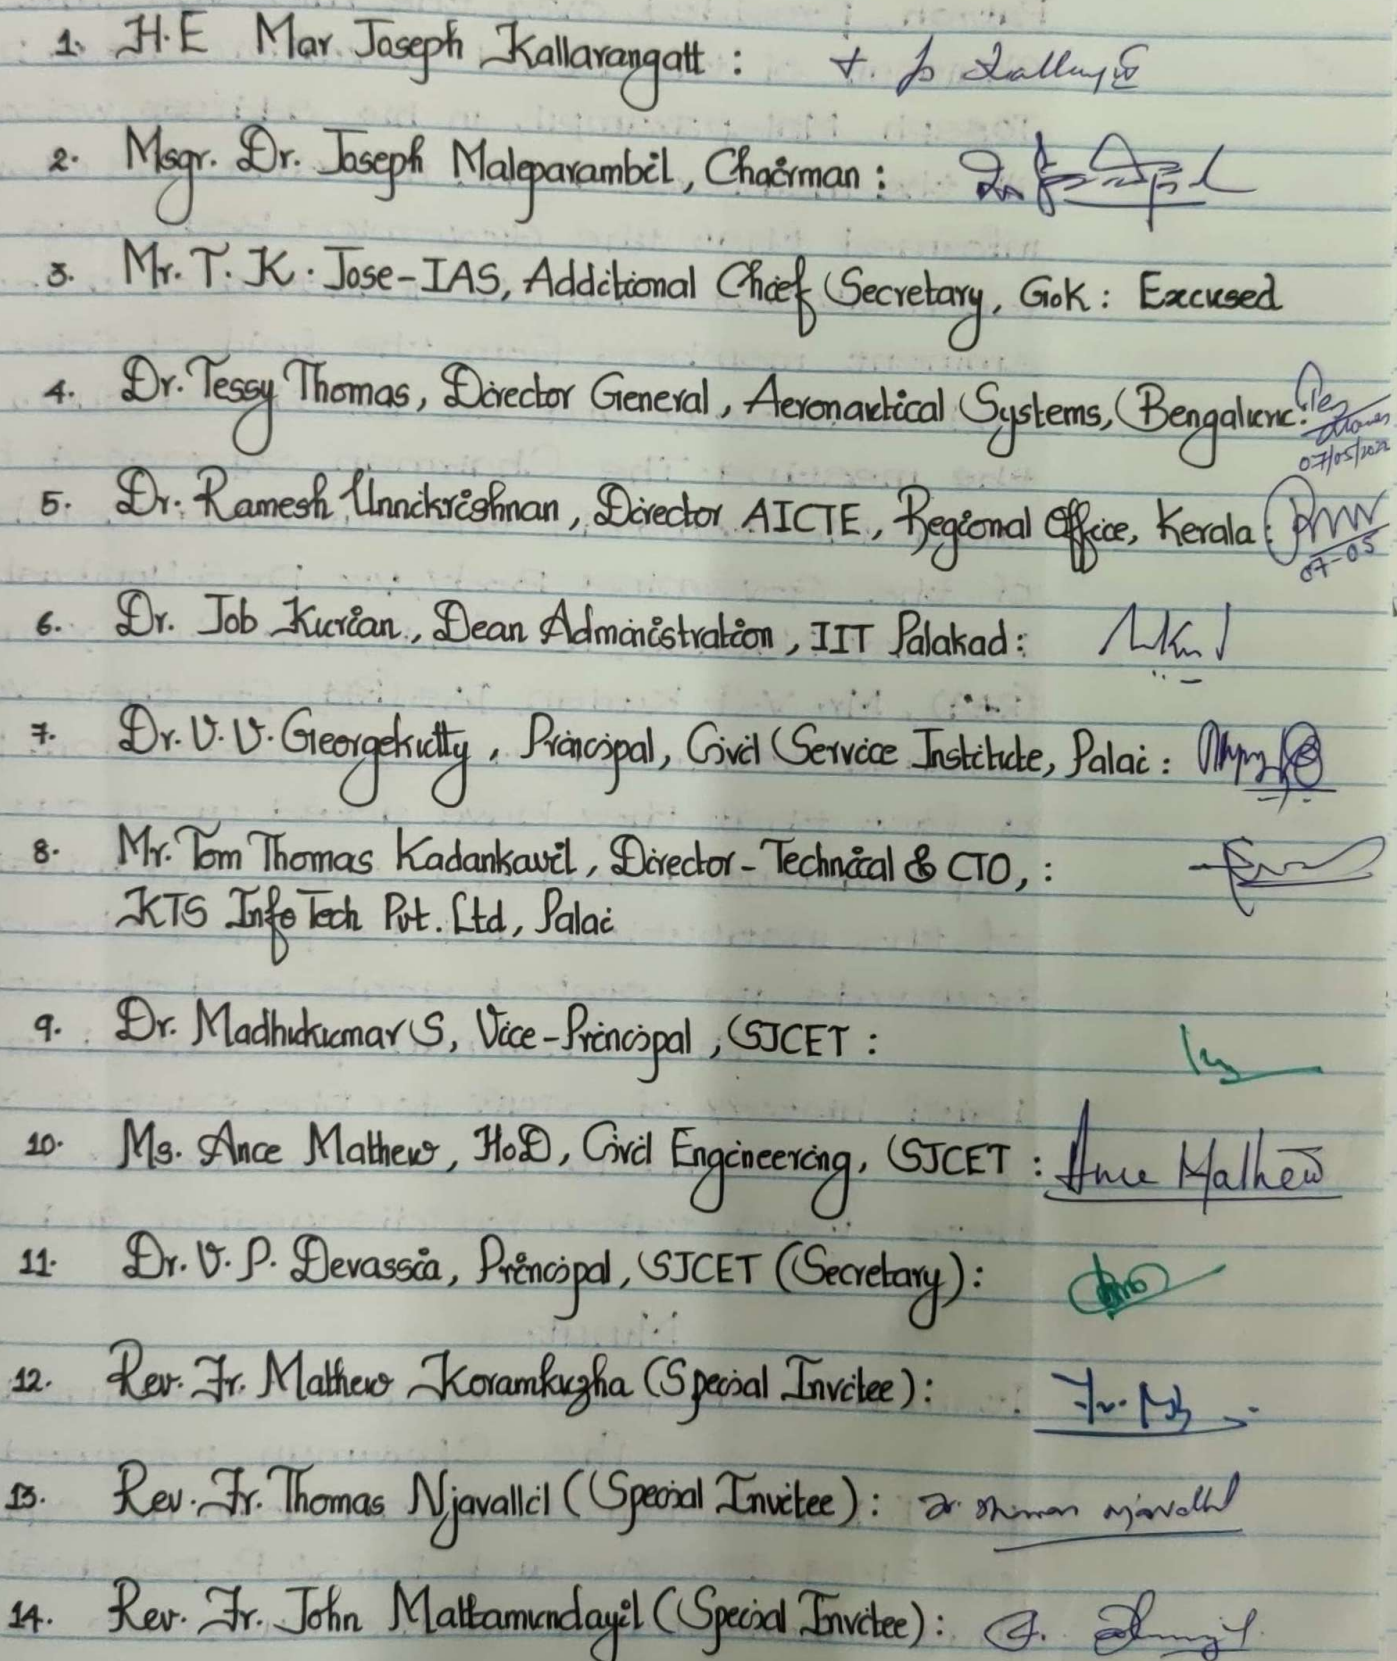 1. H.E Mar Joseph Kallarangatt :
2. Msgr. Dr. Joseph Maleparambil, Chairman :
3. Mr. T. K. Jose-IAS, Additional Chief Secretary, GoK : Excused
4. Dr. Tessy Thomas, Director General, Aeronautical Systems, Bengaluru:
07/05/2022
5. Dr. Ramesh Unnikrishnan, Director AICTE, Regional Office, Kerala :
07-05
6. Dr. Job Kurian, Dean Administration, IIT Palakad :
7. Dr. V. V. Georgekutty, Principal, Civil Service Institute, Palai :
8. Mr. Tom Thomas Kadankavil, Director-Technical & CTO, :
KTS InfoTech Pvt. Ltd, Palai
9. Dr. Madhukumar S, Vice-Principal, SJCET :
10. Ms. Ance Mathew, HoD, Civil Engineering, SJCET : Ance Mathew
11. Dr. V. P. Devassia, Principal, SJCET (Secretary) :
12. Rev. Fr. Mathew Koramkuzha (Special Invitee) :
13. Rev. Fr. Thomas Njavallil (Special Invitee) : Fr. Thomas Njavallil
14. Rev. Fr. John Mattamundayil (Special Invitee) :